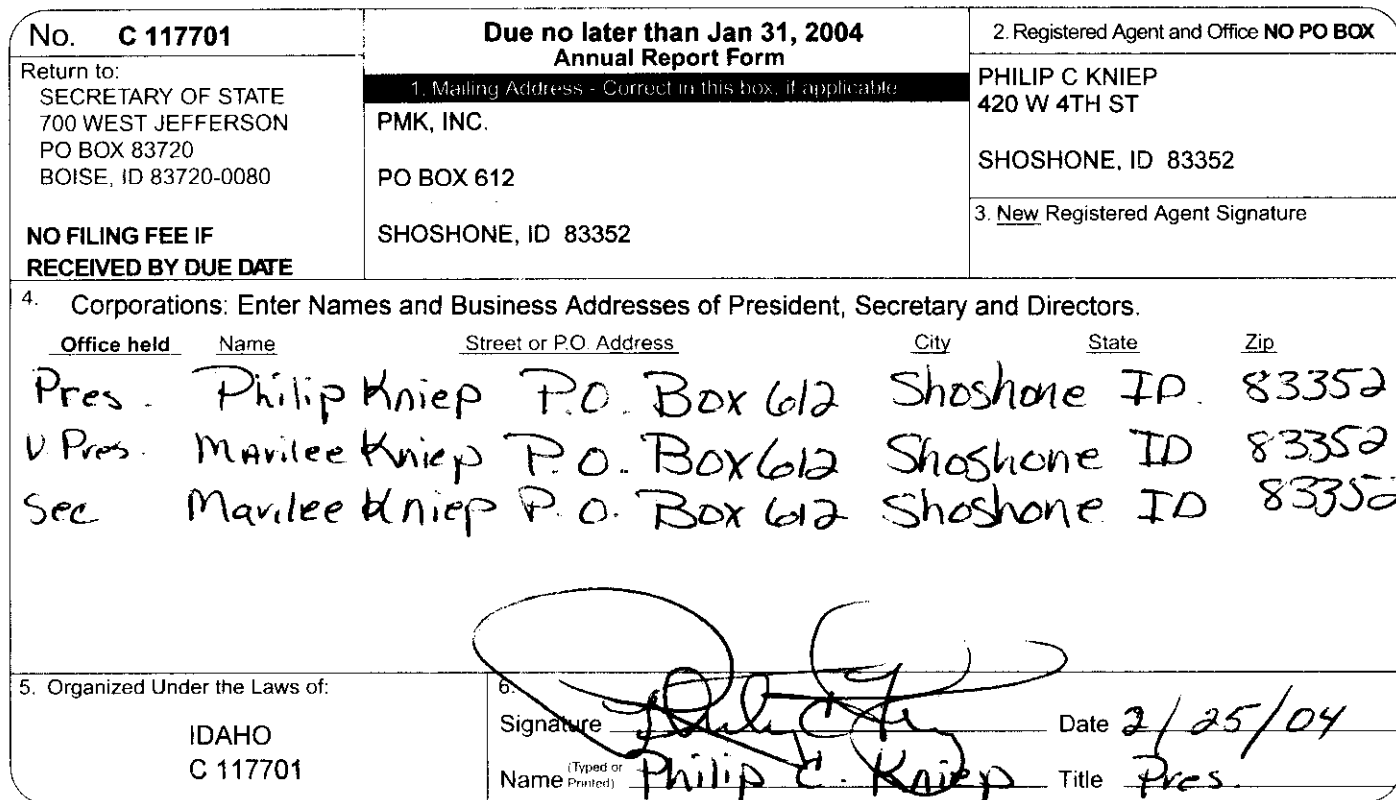 No. C 117701
Return to:
SECRETARY OF STATE
700 WEST JEFFERSON
PO BOX 83720
BOISE, ID 83720-0080
NO FILING FEE IF
RECEIVED BY DUE DATE
Due no later than Jan 31, 2004
Annual Report Form
1. Mailing Address - Correct in this box, if applicable
PMK, INC.
PO BOX 612
SHOSHONE, ID 83352
2. Registered Agent and Office NO PO BOX
PHILIP C KNIEP
420 W 4TH ST
SHOSHONE, ID 83352
3. New Registered Agent Signature
4. Corporations: Enter Names and Business Addresses of President, Secretary and Directors.
Office held Name Street or P.O. Address City State Zip
Pres. Philip Kniep P.O. Box 612 Shoshone ID. 83352
V. Pres. Marilee Kniep P.O. Box 612 Shoshone ID 83352
Sec Marilee Kniep P.O. Box 612 Shoshone ID 83352
5. Organized Under the Laws of:
IDAHO
C 117701
6.
Signature Date 2/25/04
Name (Typed or Printed) Philip C. Kniep Title Pres.